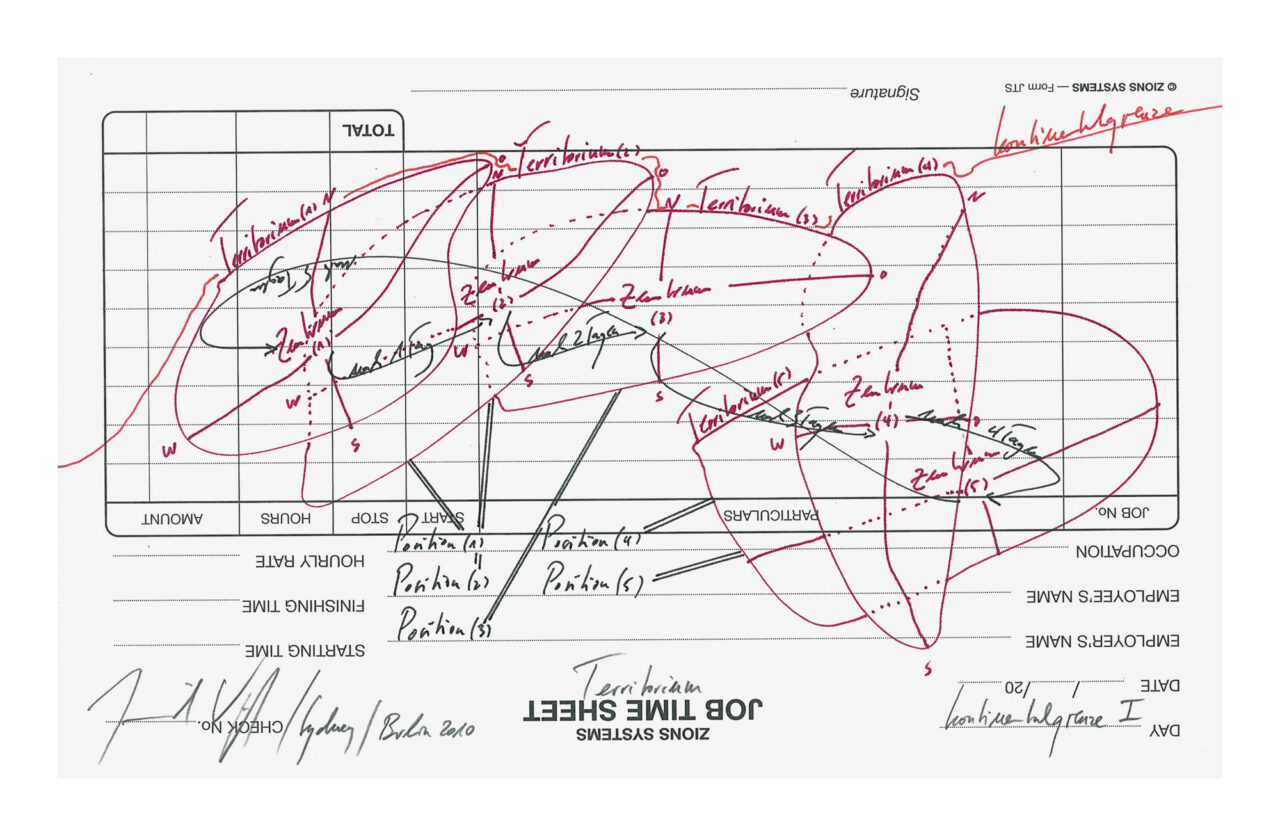 © ZIONS SYSTEMS — Form JTS
Signature
Kontinentalgrenze
TOTAL
Territorium (1)
Territorium (2)
Territorium (3)
Territorium (4)
Territorium (5)
N
O
N
O
N
O
N
O
nach 5 Tagen
Zentrum
(1)
Zentrum
(2)
Zentrum
(3)
Zentrum
(4)
Zentrum
(5)
nach 1 Tag
nach 2 Tagen
nach 3 Tagen
nach 4 Tagen
W
S
W
S
W
S
W
S
AMOUNT
HOURS
STOP
START
PARTICULARS
JOB No.
Position (1)
Position (2)
Position (3)
Position (4)
Position (5)
HOURLY RATE
FINISHING TIME
STARTING TIME
CHECK No.
OCCUPATION
EMPLOYEE'S NAME
EMPLOYER'S NAME
DATE / /20
DAY
Territorium
JOB TIME SHEET
ZIONS SYSTEMS
Kontinentalgrenze I
/ Sydney / Berlin 2010